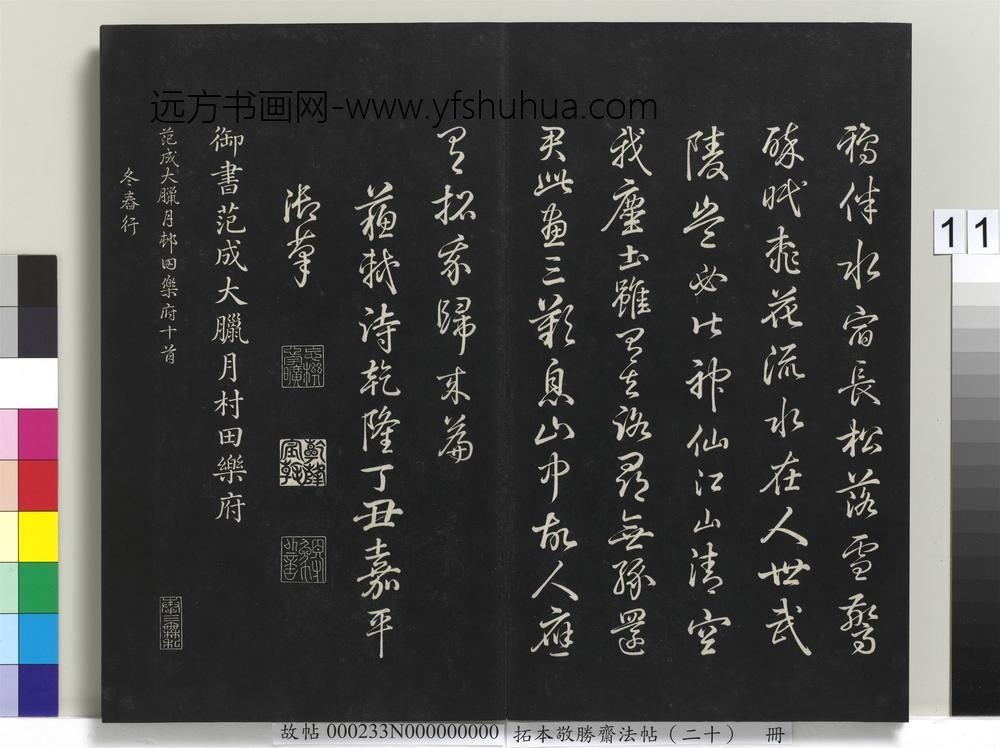 远方书画网-www.yfshuhua.com
鴉伴水宿長松落雪驚
醉眠桃花流水在人世武
陵豈必皆神仙江山清空
我塵土雖有去路尋無緣還
君此畫三歎息山中故人應
有招我歸來篇
蘇軾詩乾隆丁丑嘉平
御筆
乾隆宸翰
御書范成大臘月村田樂府
范成大臘月邨田樂府十首
冬舂行
11
故帖 000233N000000000
拓本敬勝齋法帖（二十） 冊